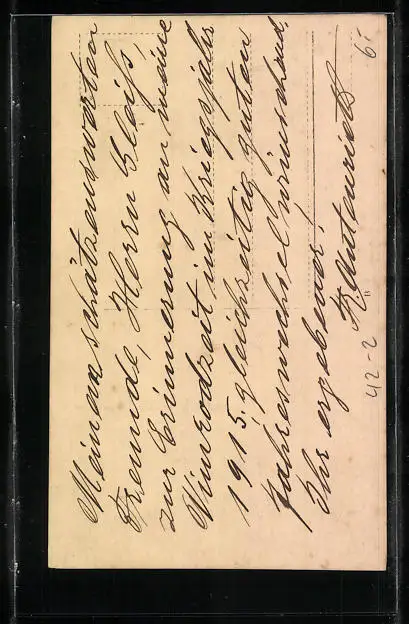 Meinem schätzenswerten
Freunde, Herrn Gleiß,
zur Erinnerung an meine
Nimrodzeit im Kriegsjahr
1915. gleichzeitig guten
Jahreswechsel wünschend.
Ihr ergebener!
42-2
6.